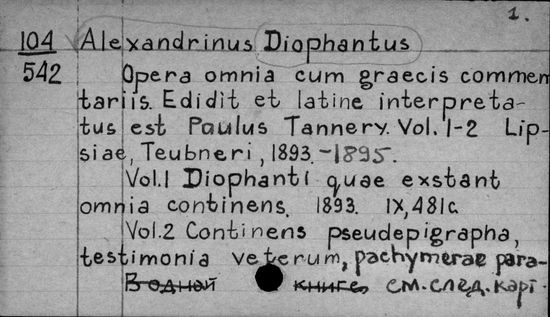 1.
104 Alexandrinus Diophantus
542 Opera omnia cum graecis commen
tariis. Edidit et latine interpreta-
tus est Paulus Tannery. Vol. 1-2 Lip-
siae, Teubneri, 1893.-1895.
Vol.1 Diophanti quae exstant
omnia continens. 1893. IX, 481 c.
Vol.2 Continens pseudepigrapha,
testimonia veterum, pachymerae para-
В одной книге, см. след. карт.